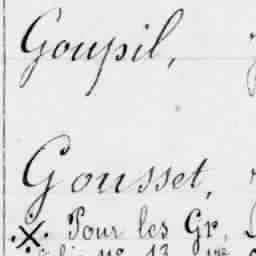 Goupil,
Gousset,
Pour les Gr.